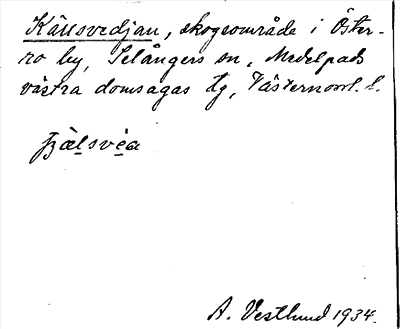 Källsvedjan, skogsområde i Öster-
ro by, Selångers sn, Medelpads
västra domsagas tg, Västernorrl. l.
fjä̀lsvéa
A. Vestlund 1934.